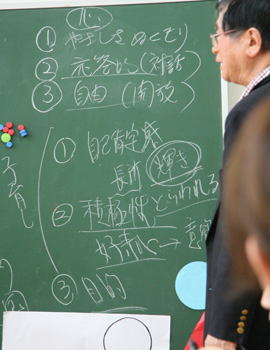 心
① やさしさ めくもり
② 応答的（対話
③ 自由（開放
子育し
① 自己肯定感
長所 輝き
② 積極性 とらわれる
好奇心→意
③ 目的